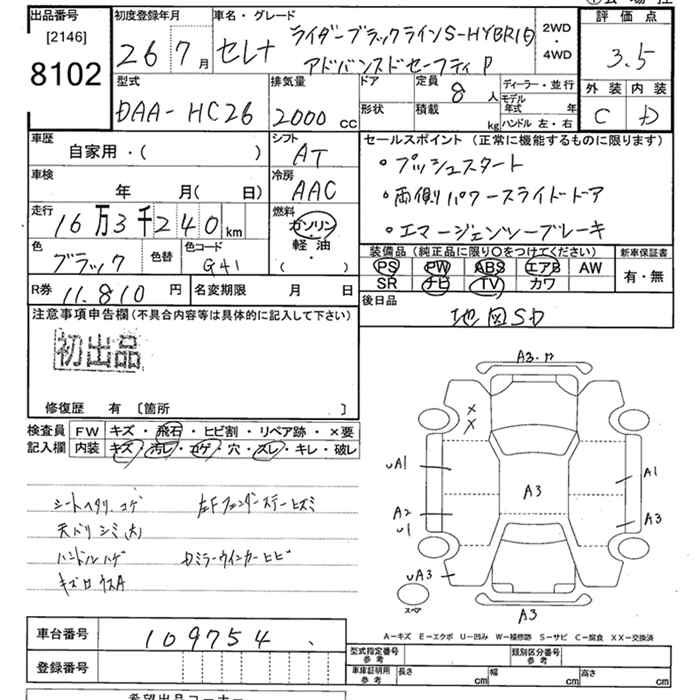 出品番号
[2146]
8102
初度登録年月
26年7月
車名・グレード
セレナ ライダーブラックラインS-HYBRID
アドバンスドセーフティP
2WD
・
4WD
評価点
3.5
外装 内装
C D
型式
DAA-HC26
排気量
2000 CC
ドア
形状
定員 8 人
積載 kg
ディーラー・並行
モデル年式 年
ハンドル 左・右
車歴
自家用・( )
シフト
AT
セールスポイント (正常に機能するものに限ります)
・プッシュスタート
・両側パワースライドドア
・エマージェンシーブレーキ
車検
年 月( 日)
冷房
AAC
走行
16万3千240 km
燃料
ガソリン
軽油
( ・ )
色
ブラック
色替
色コード
G41
装備品 (純正品に限り○をつけてください)
PS PW ABS エアB AW
SR ナビ TV カワ
新車保証書
有・無
R券 11.810 円
名変期限 月 日
後日品
地図SD
注意事項申告欄(不具合内容等は具体的に記入して下さい)
初出品
修復歴 有 〔箇所 〕
検査員
記入欄
FW キズ・飛石・ヒビ割・リペア跡・×要
内装 キズ・汚レ・コゲ・穴・スレ・キレ・破レ
シートヘタリ、コゲ
天バリシミ(大)
ハンドルハゲ
左Fフェンダーステーヒズミ
カミラーウインカーヒビ
A3.P
X
X
uA1
A2
u1
uA3
A3
A1
A3
A3
スペア
A−キズ E−エクボ U−凹み W−補修跡 S−サビ C−腐食 XX−交換済
車台番号
109754
登録番号
型式指定番号
参考
類別区分番号
参考
車庫証明用
参考
長さ cm
幅 cm
高さ cm
希望出品コーナー